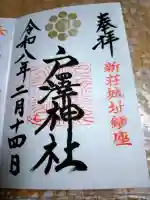 奉拝
新荘城址鎮座
戸澤神社
令和八年二月十四日